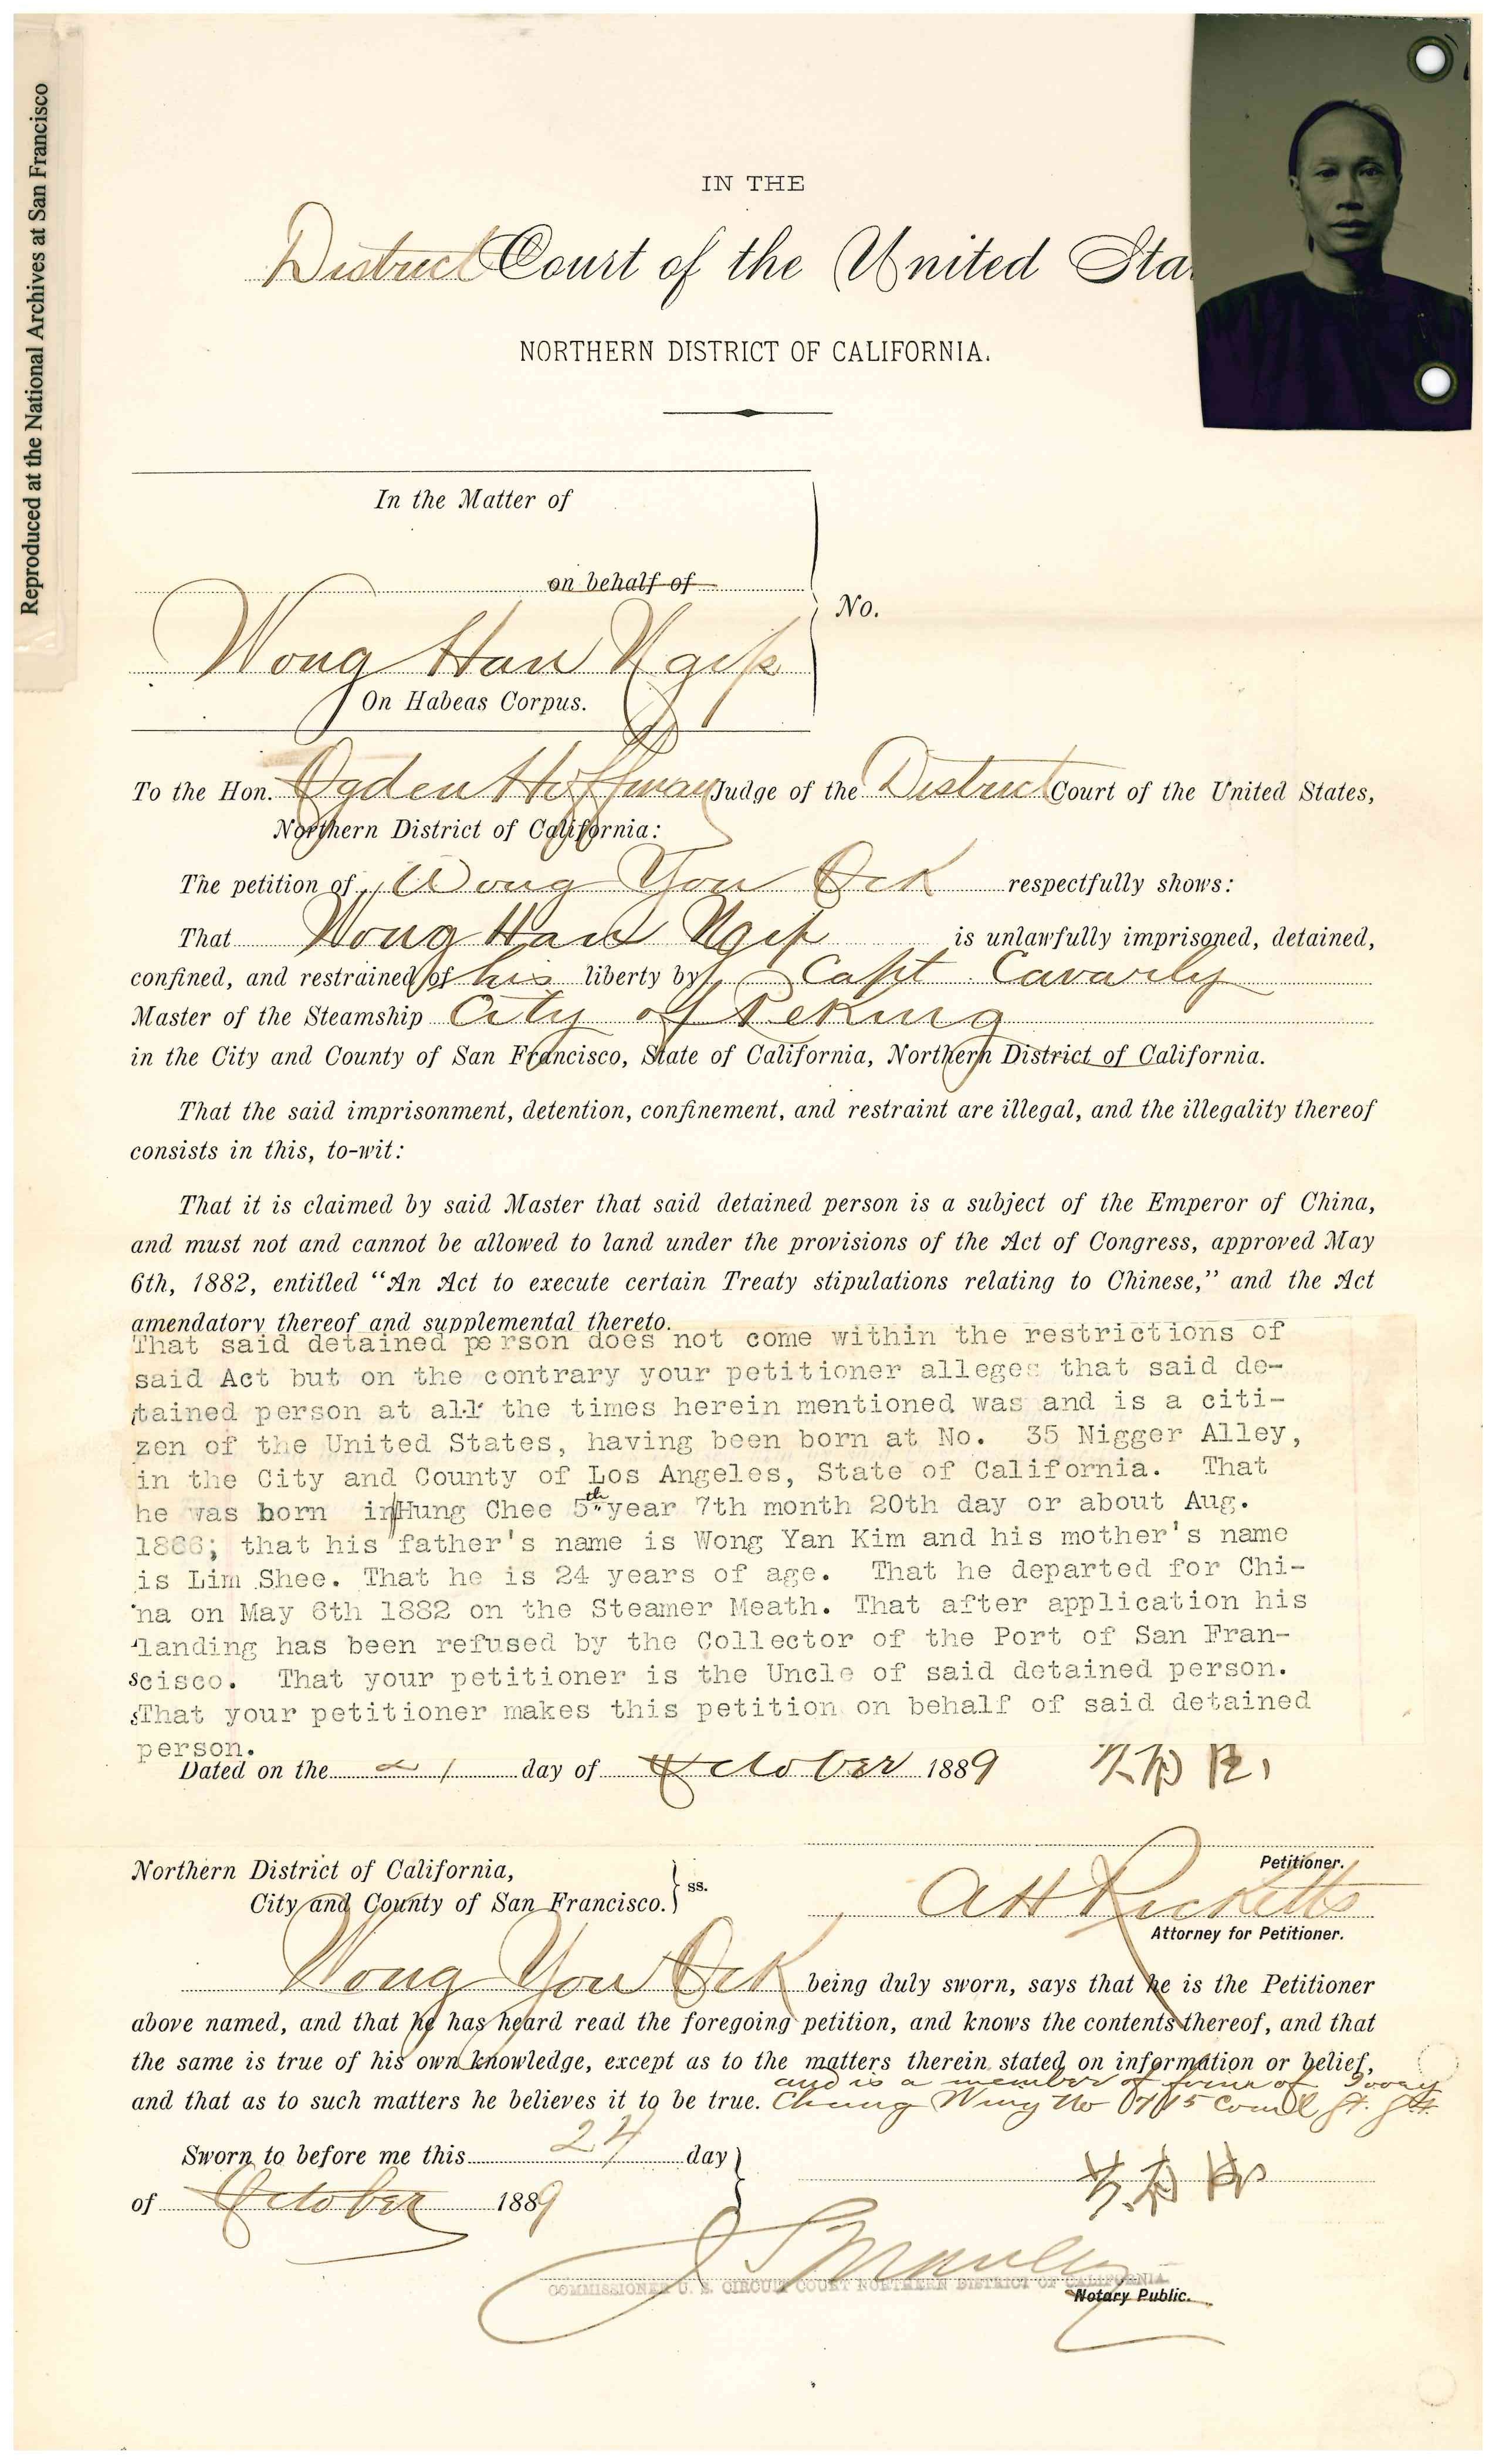 Reproduced at the National Archives at San Francisco
IN THE
District Court of the United Sta
NORTHERN DISTRICT OF CALIFORNIA.
In the Matter of
on behalf of
No.
Wong Han Ngip
On Habeas Corpus.
To the Hon. Ogden Hoffman Judge of the District Court of the United States,
Northern District of California:
The petition of Wong You Ock respectfully shows:
That Wong Han Ngip is unlawfully imprisoned, detained,
confined, and restrained of his liberty by Capt Cavarly
Master of the Steamship City of Peking
in the City and County of San Francisco, State of California, Northern District of California.
That the said imprisonment, detention, confinement, and restraint are illegal, and the illegality thereof
consists in this, to-wit:
That it is claimed by said Master that said detained person is a subject of the Emperor of China,
and must not and cannot be allowed to land under the provisions of the Act of Congress, approved May
6th, 1882, entitled “An Act to execute certain Treaty stipulations relating to Chinese,” and the Act
amendatory thereof and supplemental thereto.
That said detained person does not come within the restrictions of
said Act but on the contrary your petitioner alleges that said de-
tained person at all the times herein mentioned was and is a citi-
zen of the United States, having been born at No. 35 Nigger Alley,
in the City and County of Los Angeles, State of California. That
he was born in Hung Chee 5th year 7th month 20th day or about Aug.
1866; that his father's name is Wong Yan Kim and his mother's name
is Lim Shee. That he is 24 years of age. That he departed for Chi-
na on May 6th 1882 on the Steamer Meath. That after application his
landing has been refused by the Collector of the Port of San Fran-
cisco. That your petitioner is the Uncle of said detained person.
That your petitioner makes this petition on behalf of said detained
person.
Dated on the 21 day of October 1889
Petitioner.
Northern District of California,
City and County of San Francisco. ss.
A H Ricketts
Attorney for Petitioner.
Wong You Ock being duly sworn, says that he is the Petitioner
above named, and that he has heard read the foregoing petition, and knows the contents thereof, and that
the same is true of his own knowledge, except as to the matters therein stated on information or belief,
and is a member of firm of
and that as to such matters he believes it to be true. Chung Wing No
Sworn to before me this 24 day
of October 1889
COMMISSIONER U. S. CIRCUIT COURT NORTHERN DISTRICT OF CALIFORNIA
Notary Public.